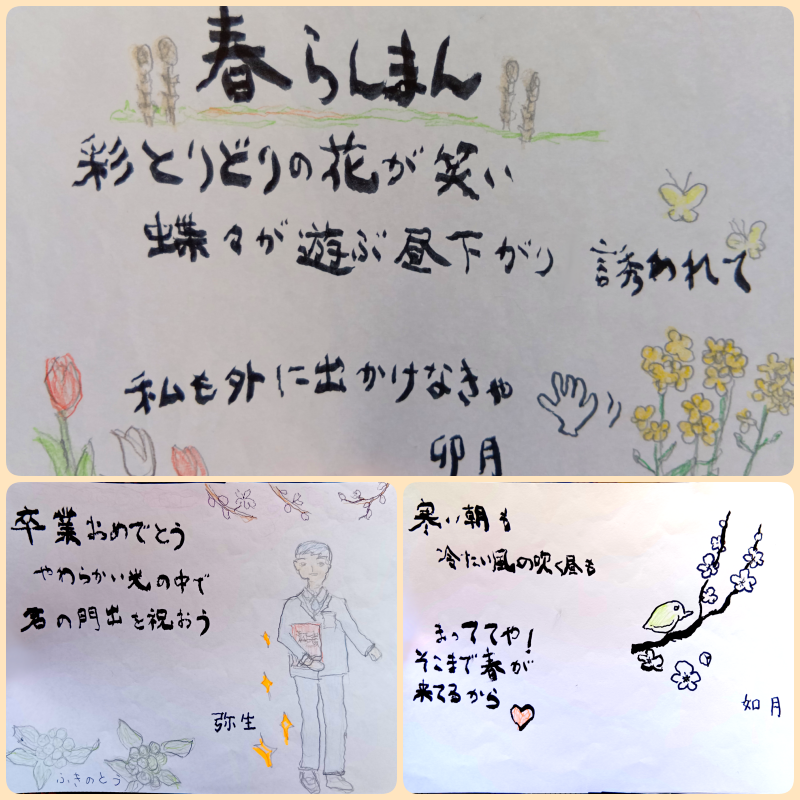 春らんまん
彩とりどりの花が笑い
蝶々が遊ぶ昼下がり 誘われて
私も外に出かけなきゃ
卯月
卒業おめでとう
やわらかい光の中で
君の門出を祝おう
弥生
ふきのとう
寒い朝も
冷たい風の吹く昼も
まっててや!
そこまで春が
来てるから
如月